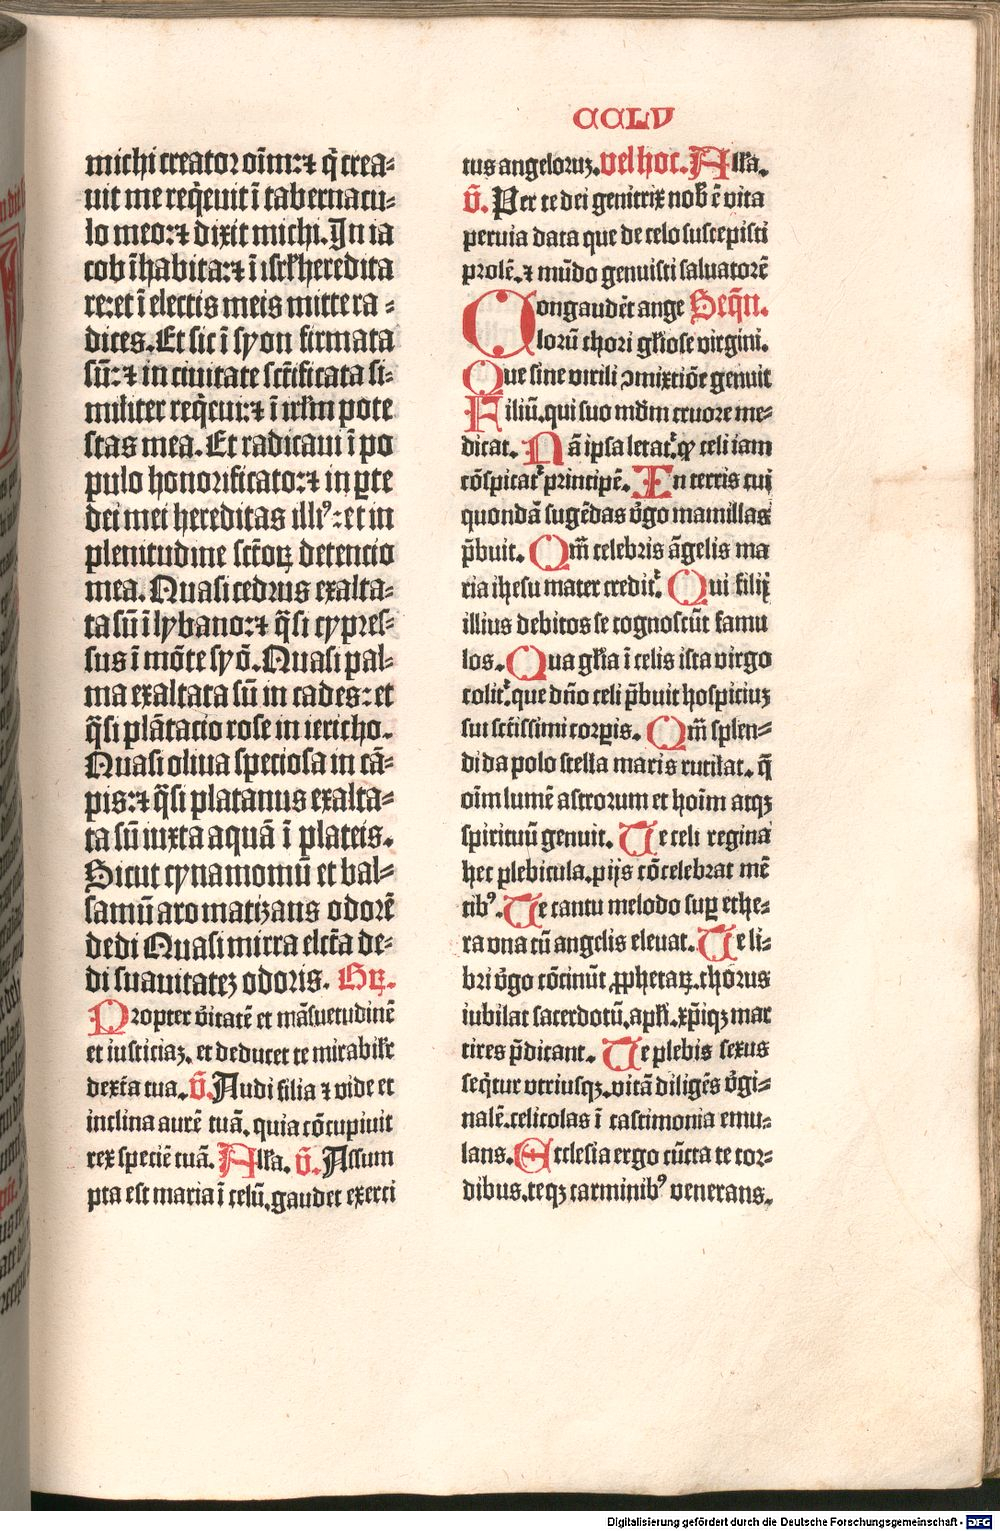 CCLV
michi creator oīm:⁊ q̄ crea⸗
uit me req̄euit ī tabernacu⸗
lo meo:⁊ dixit michi. In ia
cob īhabita:⁊ ī isrl̄ heredita
re:et ī electis meis mitte ra⸗
dices. Et sic ī syon firmata
sū:⁊ in ciuitate sct̄ificata si⸗
militer req̄eui:⁊ ī irl̄m pote
stas mea. Et radicaui ī po
pulo honorificato:⁊ in ꝑte
dei mei hereditas illiꝰ:et in
plenitudine sct̄oꝝ detencio
mea. Quasi cedrus exalta⸗
ta sū ī lybano:⁊ q̄si cypres⸗
sus ī mōte syō. Quasi pal⸗
ma exaltata sū in cades:et
q̄si plātacio rose in iericho.
Quasi oliua speciosa in cā⸗
pis:⁊ q̄si platanus exalta⸗
ta sū iuxta aquā ī plateis.
Sicut cynamomū et bal⸗
samū aromatizans odorē
dedi Quasi mirra elct̄a de⸗
di suauitateꝫ odoris. Gꝝ.
Propter v̄itatē et māsuetudinē
et iusticiaꝫ. et deducet te mirabilr̄
dext̄a tua. v̄. Audi filia ⁊ vide et
inclina aurē tuā. quia cōcupiuit
rex speciē tuā. All̄a. v̄. Assum
pta est maria ī celū. gaudet exerci
tus angeloruꝫ. vel hoc. All̄a.
v̄. Per te dei genitrix nob̄ ē vita
peruia data que de celo suscepisti
prolē. ⁊ mūdo genuisti saluatorē
Congaudēt ange Seq̄n.
lorū chori gl̄iose virgini.
Que sine virili ꝯmixtiōe genuit
Filiū. qui suo mdm̄ cruore me⸗
dicat. Nā ipsa letat᷑. ꝙ celi iam
cōspicat᷑ principē. In terris cui
quondā sugēdas v̄go mamillas
p̄buit. Qm̄ celebris āgelis ma
ria ihesu mater credit᷑. Qui filij
illius debitos se cognoscūt famu
los. Qua gl̄ia ī celis ista virgo
colit᷑. que dn̄o celi p̄buit hospiciuꝫ
sui sct̄issimi corꝑis. Qm̄ splen⸗
dida polo stella maris rutilat. q̄
oīm lumē astrorum et hoīm atqꝫ
spirituū genuit. Te celi regina
hec plebicula. pijs cōcelebrat mē
tibꝰ. Te cantu melodo suꝑ ethe⸗
ra vna cū angelis eleuat. Te li⸗
bri v̄go cōcinūt ꝓphetaꝝ. chorus
iubilat sacerdotū. apl̄i. xp̄iqꝫ mar
tires p̄dicant. Te plebis sexus
seq̄tur vtriusqꝫ. vitā diligēs v̄gi⸗
nalē. celicolas ī castimonia emu⸗
lans. Ecclesia ergo cūcta te cor⸗
dibus. teqꝫ carminibꝰ venerans.
Digitalisierung gefördert durch die Deutsche Forschungsgemeinschaft - DFG